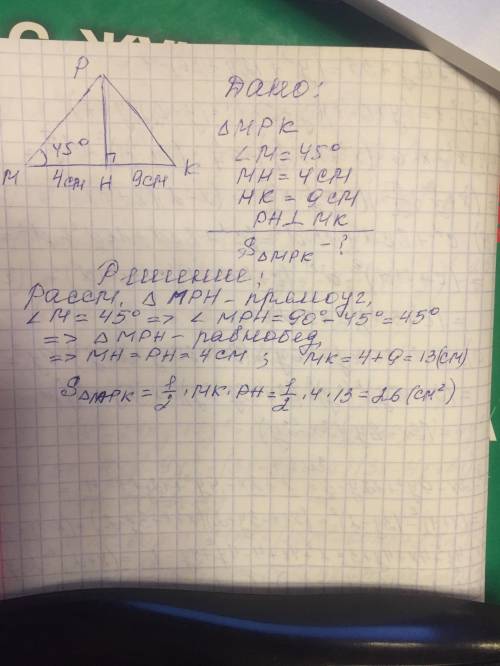 P
45°
M 4см H 9см K
Дано:
△MPK
∠M=45°
MH=4см
HK=9см
PH⊥MK
S△MPK-?
Решение:
Рассм. △MPH-прямоуг,
∠M=45°=>∠MPH=90°-45°=45°
=> △MPH-равнобед,
=> MH=PH=4см; MK=4+9=13(см)
S△MPK=1/2·MK·PH=1/2·4·13=26(см²)